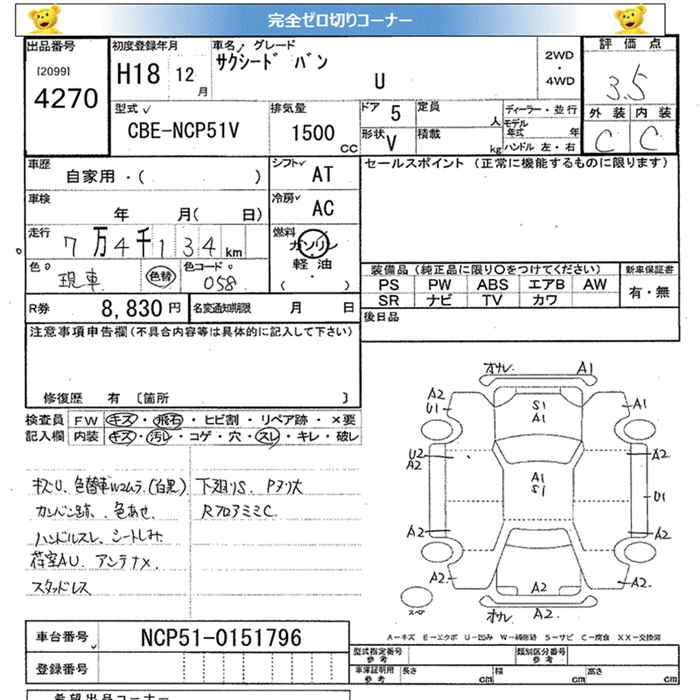 完全ゼロ切りコーナー
出品番号
[2099]
4270
初度登録年月
H18 12 月
車名 グレード
サクシード バン
U
2WD
・
4WD
評価点
3.5
外装 内装
C C
型式
CBE-NCP51V
排気量
1500 CC
ドア 5
定員 人
形状 V
積載 kg
ディーラー・並行
モデル年式 年
ハンドル 左・右
車歴
自家用・( )
シフト AT
車検
年 月( 日)
冷房 AC
走行
7万4千134km
燃料
ガソリン
軽油
( )
色
現車
色替
色コード
058
R券 8,830円
名変通知期限 月 日
セールスポイント (正常に機能するものに限ります)
装備品 (純正品に限り〇をつけてください)
PS PW ABS エアB AW
SR ナビ TV カワ
新車保証書
有・無
後日品
注意事項申告欄(不具合内容等は具体的に記入して下さい)
修復歴 有 〔箇所 〕
検査員記入欄
FW キズ・飛石・ヒビ割・リペア跡・×要
内装 キズ・汚レ・コゲ・穴・スレ・キレ・破レ
キズU、色替車Wムラ(白黒)
カンバン跡、色あせ
ハンドルスレ、シートしみ
荷室AU、アンテナX
スタッドレス
下廻りS、Pヌリ大
RフロアミミC
オサレ A1
A2
U1
S1
A1
A1
U2
A2
A2
A1
S1
U1
A2
A2
A2
A2
A2
オサレ A2
スペア
A-キズ E-エクボ U-凹み W-補修跡 S-サビ C-腐食 XX-交換済
車台番号 NCP51-0151796
登録番号
型式指定番号
参考
類別区分番号
参考
車庫証明用
参考
長さ cm
幅 cm
高さ cm
希望出品コーナー